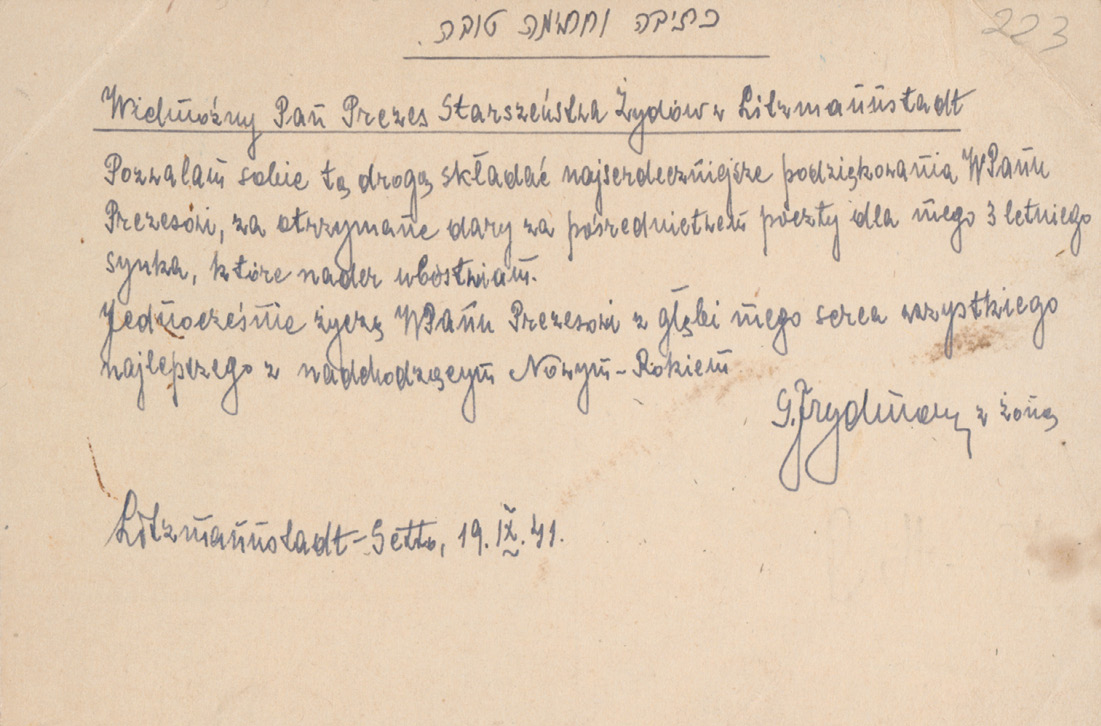 כתיבה וחתימה טובה.
223
Wielmożny Pan Prezes Starszeństwa Żydów w Litzmannstadt
Pozwalam sobie tą drogą składać najserdeczniejsze podziękowania WPanu
Prezesowi, za otrzymane dary za pośrednictwem poczty dla mego 3 letniego
synka, które nader ubóstwiam.
Jednocześnie życzę WPanu Prezesowi z głębi mego serca wszystkiego
najlepszego z nadchodzącym Nowym-Rokiem
G. Frydman z żoną
Litzmannstadt-Getto, 19.IX.41.